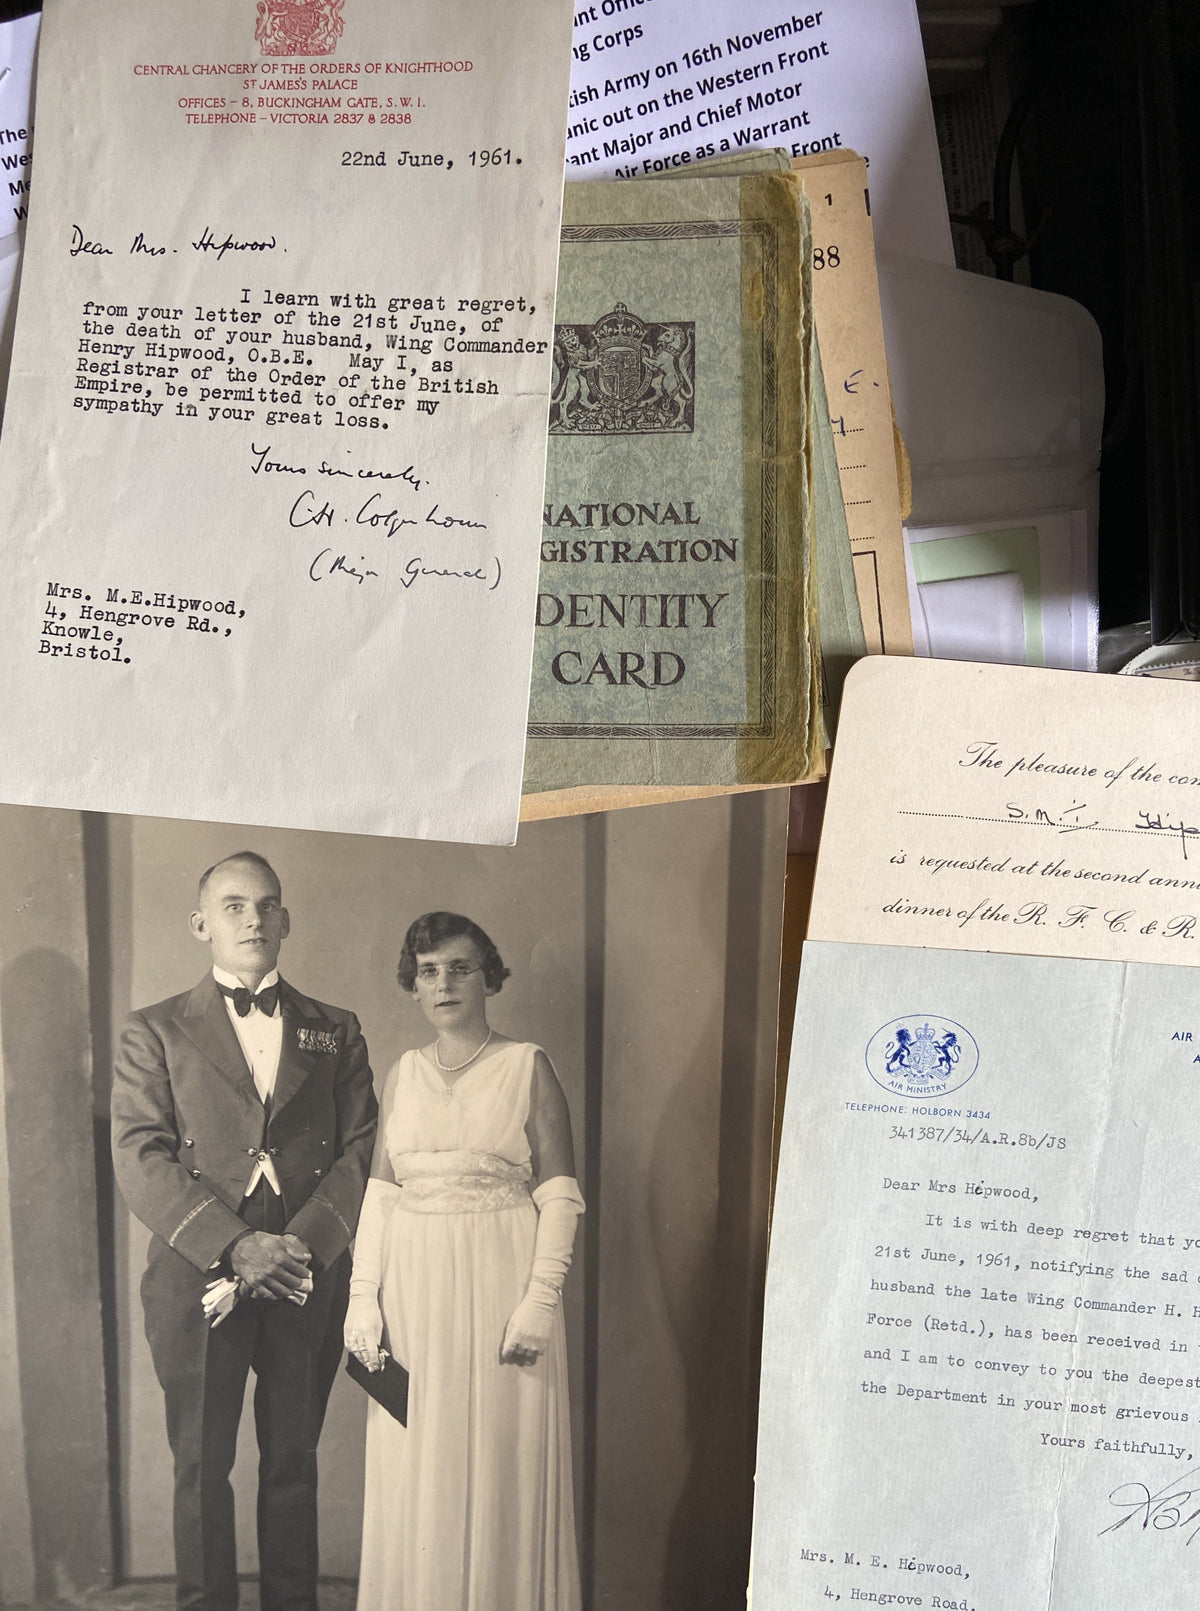 CENTRAL CHANCERY OF THE ORDERS OF KNIGHTHOOD
ST JAMES'S PALACE
OFFICES – 8, BUCKINGHAM GATE, S.W.1.
TELEPHONE – VICTORIA 2837 & 2838
22nd June, 1961.
Dear Mrs. Hipwood.
I learn with great regret,
from your letter of the 21st June, of
the death of your husband, Wing Commander
Henry Hipwood, O.B.E. May I, as
Registrar of the Order of the British
Empire, be permitted to offer my
sympathy in your great loss.
Yours sincerely.
(Major General)
Mrs. M.E.Hipwood,
4, Hengrove Rd.,
Knowle,
Bristol.
ng Corps
tish Army on 16th November
anic out on the Western Front
ant Major and Chief Motor
Air Force as a Warrant
Front
The
Wes
Me
W
1
88
E.
NATIONAL
GISTRATION
IDENTITY
CARD
The pleasure of the com
S.M.1. Hip
is requested at the second annu
dinner of the R. F. C. & R.
AIR MINISTRY
AIR
A
TELEPHONE: HOLBORN 3434
341387/34/A.R.8b/JS
Dear Mrs Hipwood,
It is with deep regret that yo
21st June, 1961, notifying the sad
husband the late Wing Commander H. H
Force (Retd.), has been received in
and I am to convey to you the deepest
the Department in your most grievous
Yours faithfully,
Mrs. M. E. Hipwood,
4, Hengrove Road.